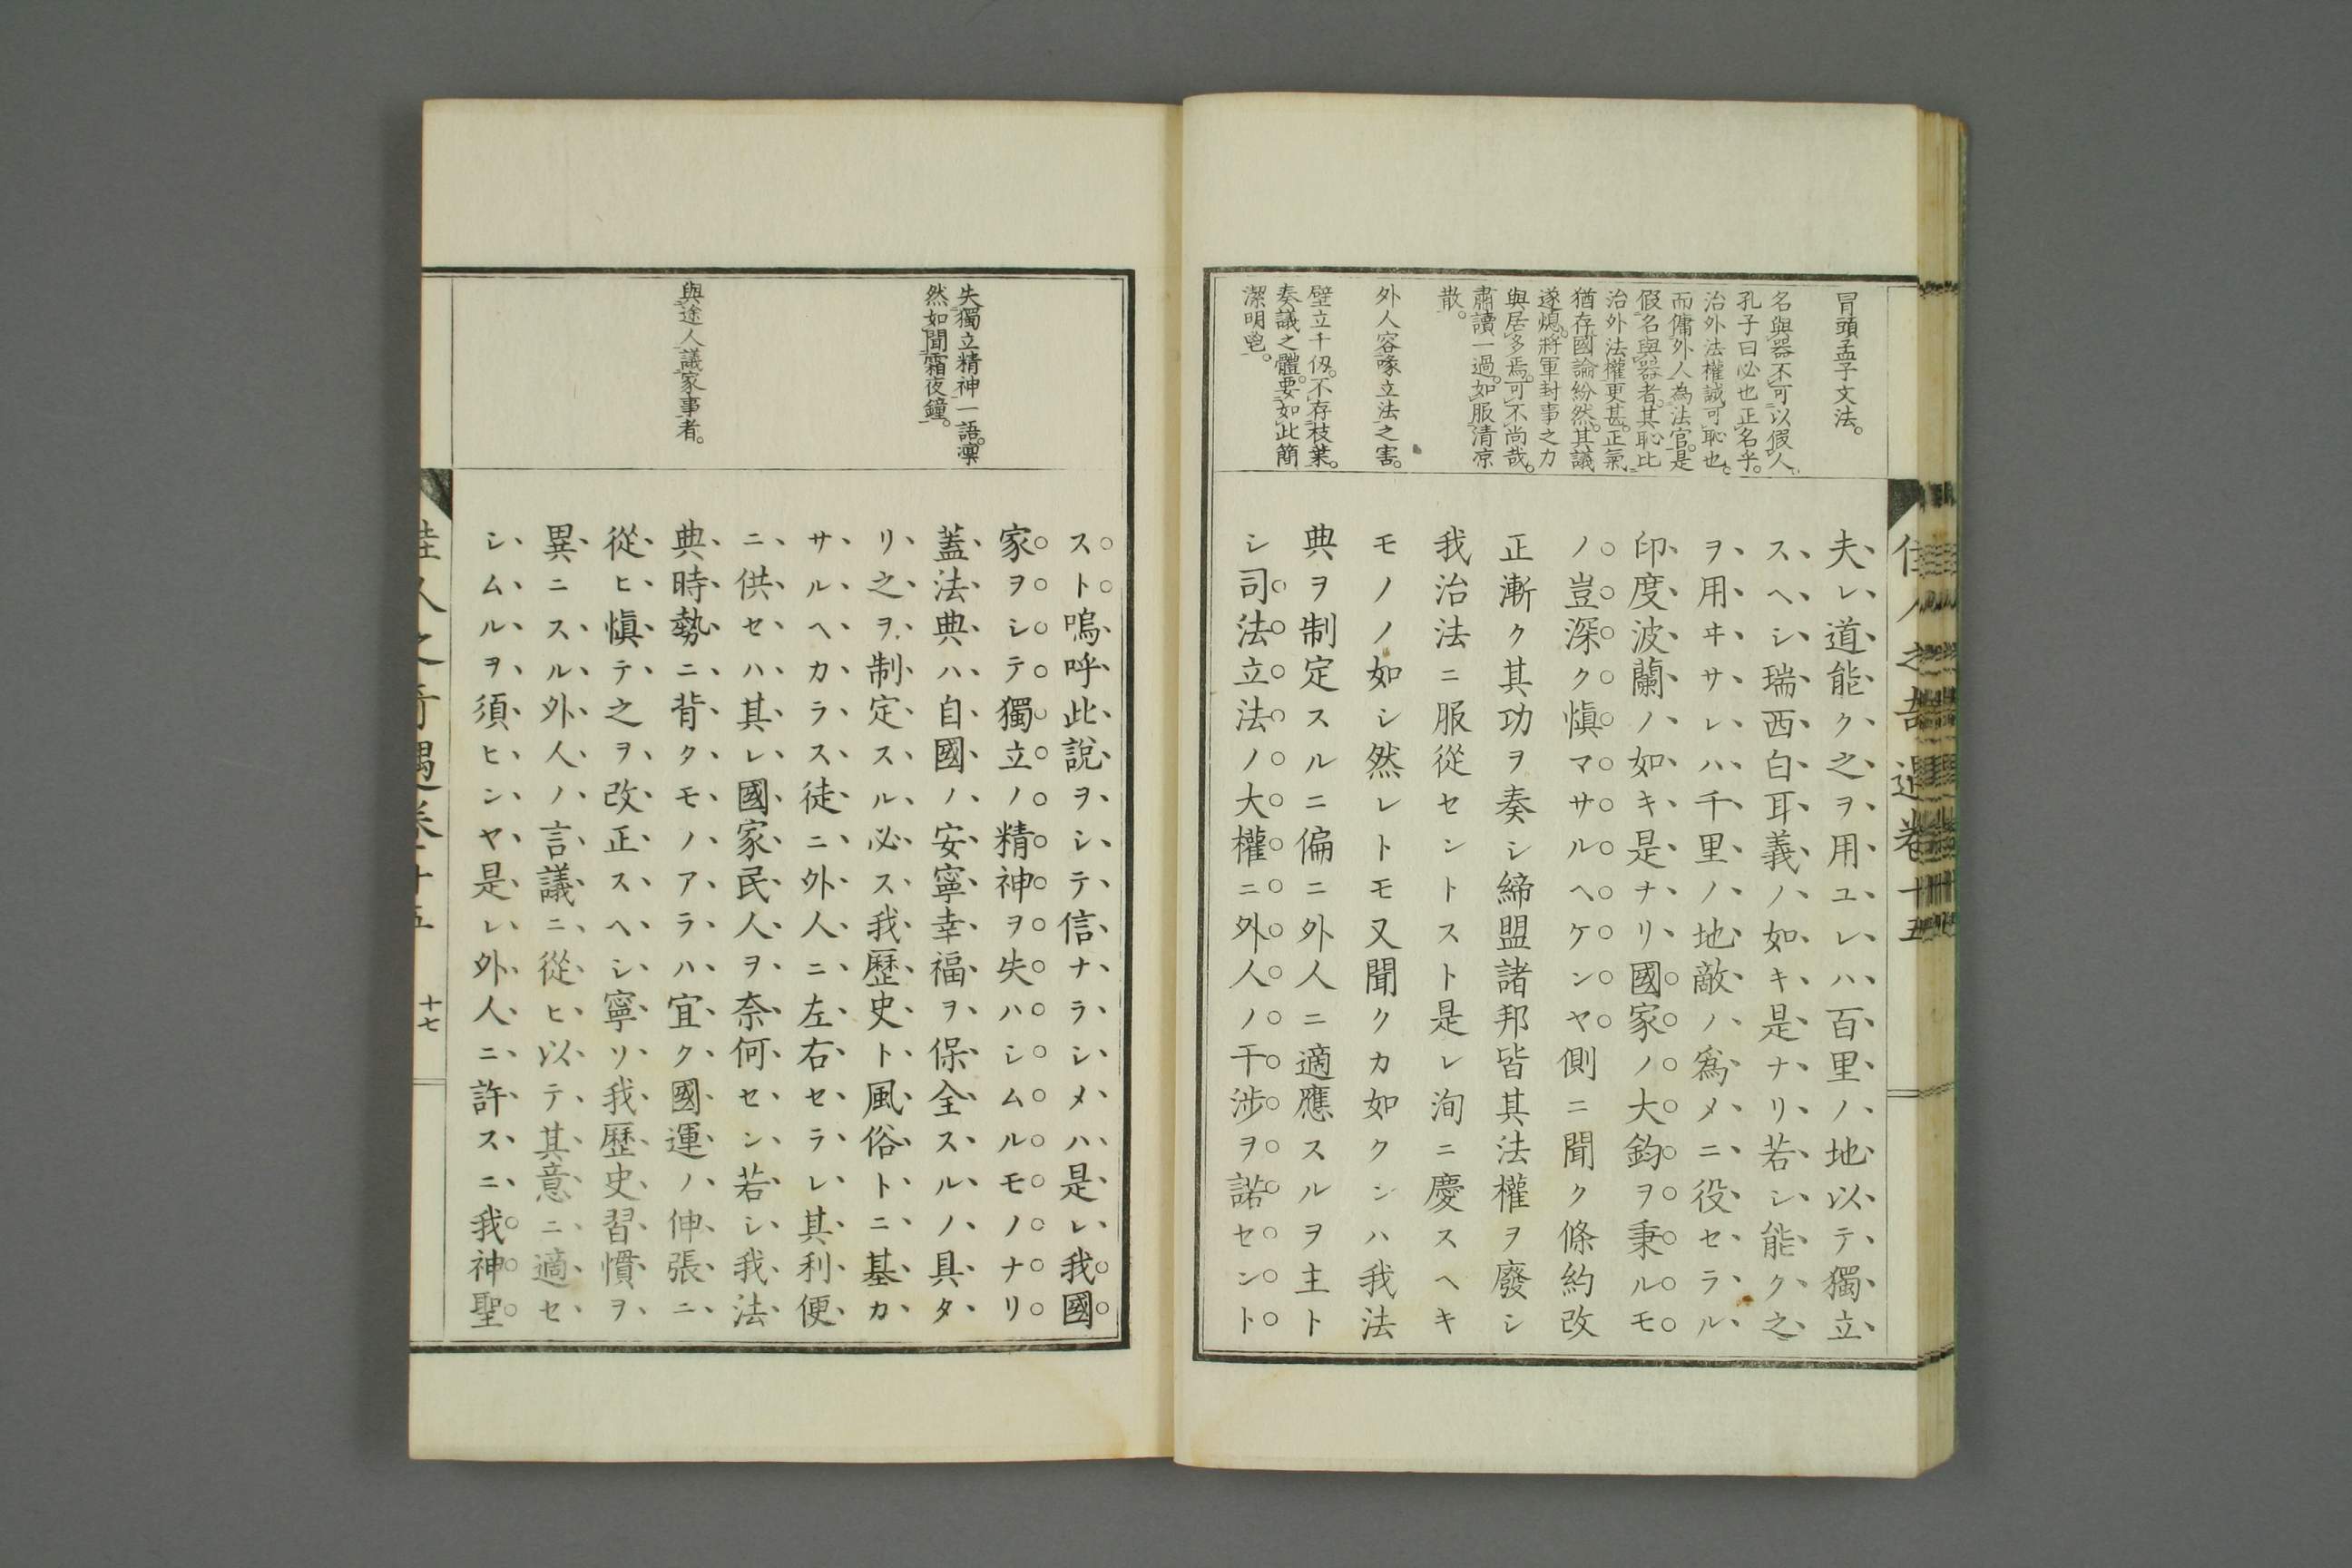 佳人之奇遇卷十五
冒頭孟子文法。
名與器不可以假人
孔子曰必也正名乎。
治外法權誠可恥也。
而傭外人為法官。是
假名與器者。其恥比
治外法權更甚。正氣
猶存國論紛然。其議
遂熄。將軍封事之力
與居多焉。可不尚哉。
肅讀一過。如服清凉
散。
外人容喙立法之害。
壁立千仭。不存枝葉。
奏議之體。要如此簡
潔明鬯。
夫レ道能ク之ヲ用ユレハ百里ノ地以テ獨立
スヘシ瑞西白耳義ノ如キ是ナリ若シ能ク之
ヲ用ヰサレハ千里ノ地敵ノ爲メニ役セラル
印度波蘭ノ如キ是ナリ國家ノ大鈞ヲ秉ルモ
ノ豈深ク愼マサルヘケンヤ側ニ聞ク條約改
正漸ク其功ヲ奏シ締盟諸邦皆其法權ヲ廢シ
我治法ニ服從セントスト是レ洵ニ慶スヘキ
モノノ如シ然レトモ又聞クカ如クンハ我法
典ヲ制定スルニ偏ニ外人ニ適應スルヲ主ト
シ司法立法ノ大權ニ外人ノ干涉ヲ諾セント
失獨立精神一語。凛
然如聞霜夜鐘。
與途人議家事者。
スト嗚呼此說ヲシテ信ナラシメハ是レ我國
家ヲシテ獨立ノ精神ヲ失ハシムルモノナリ
蓋法典ハ自國ノ安寧幸福ヲ保全スルノ具タ
リ之ヲ制定スル必ス我歷史ト風俗トニ基カ
サルヘカラス徒ニ外人ニ左右セラレ其利便
ニ供セハ其レ國家民人ヲ奈何セン若シ我法
典時勢ニ背クモノアラハ宜ク國運ノ伸張ニ
從ヒ愼テ之ヲ改正スヘシ寧リ我歷史習慣ヲ
異ニスル外人ノ言議ニ從ヒ以テ其意ニ適セ
シムルヲ須ヒンヤ是レ外人ニ許スニ我神聖
佳人之奇遇卷十五
十七